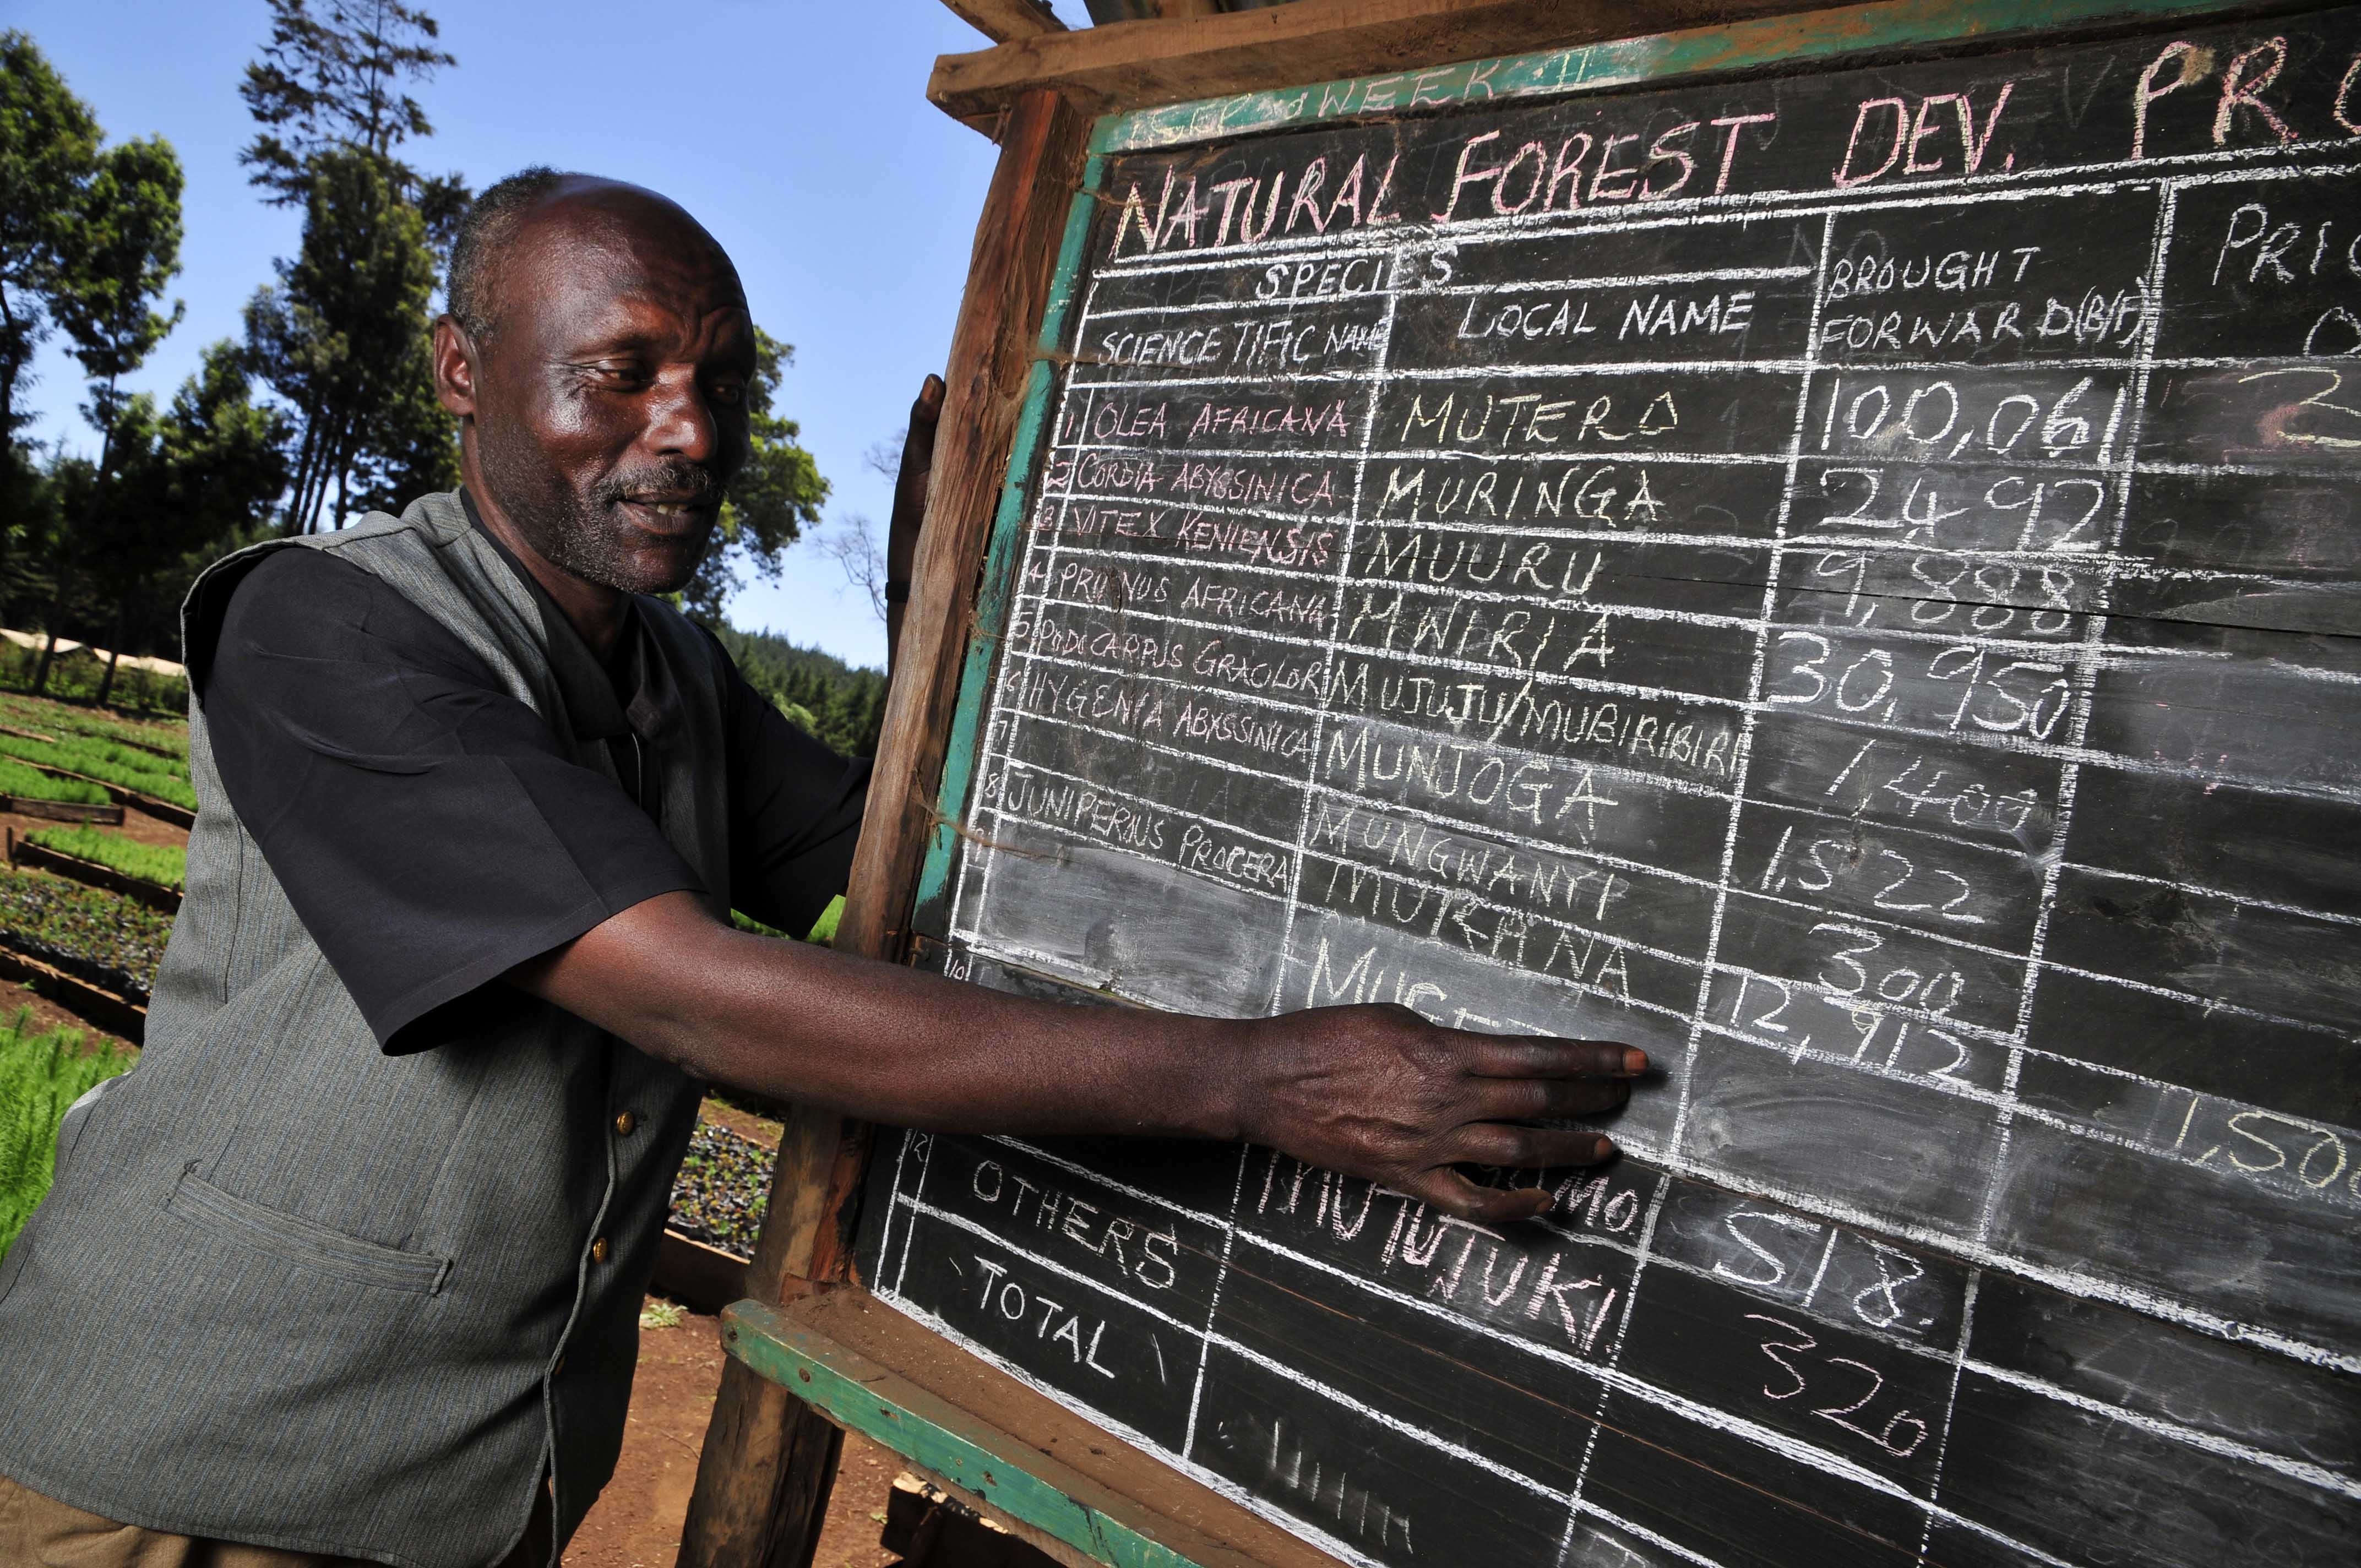 WEEK II
NATURAL FOREST DEV. PRO
SPECIES
SCIENCE TIFIC NAME LOCAL NAME BROUGHT FORWARD(B/F) PRIC
1 OLEA AFRICANA MUTERO 100,061 2
2 CORDIA ABYSSINICA MURINGA 2492
3 VITEX KENIENSIS MUURU 9,888
4 PRUNUS AFRICANA MWIRIA 30,950
5 PODOCARPUS GRACLOR MUJUJU/MUBIRIBIRI 1,409
6 HYGENIA ABYSSINICA MUNJOGA 1,522
7 MUNGWANYI 300
8 JUNIPERIUS PROCERA MURANA 12,912
9 1,50
10
MO. 518.
12 OTHERS MUTUTUKI. 320
TOTAL